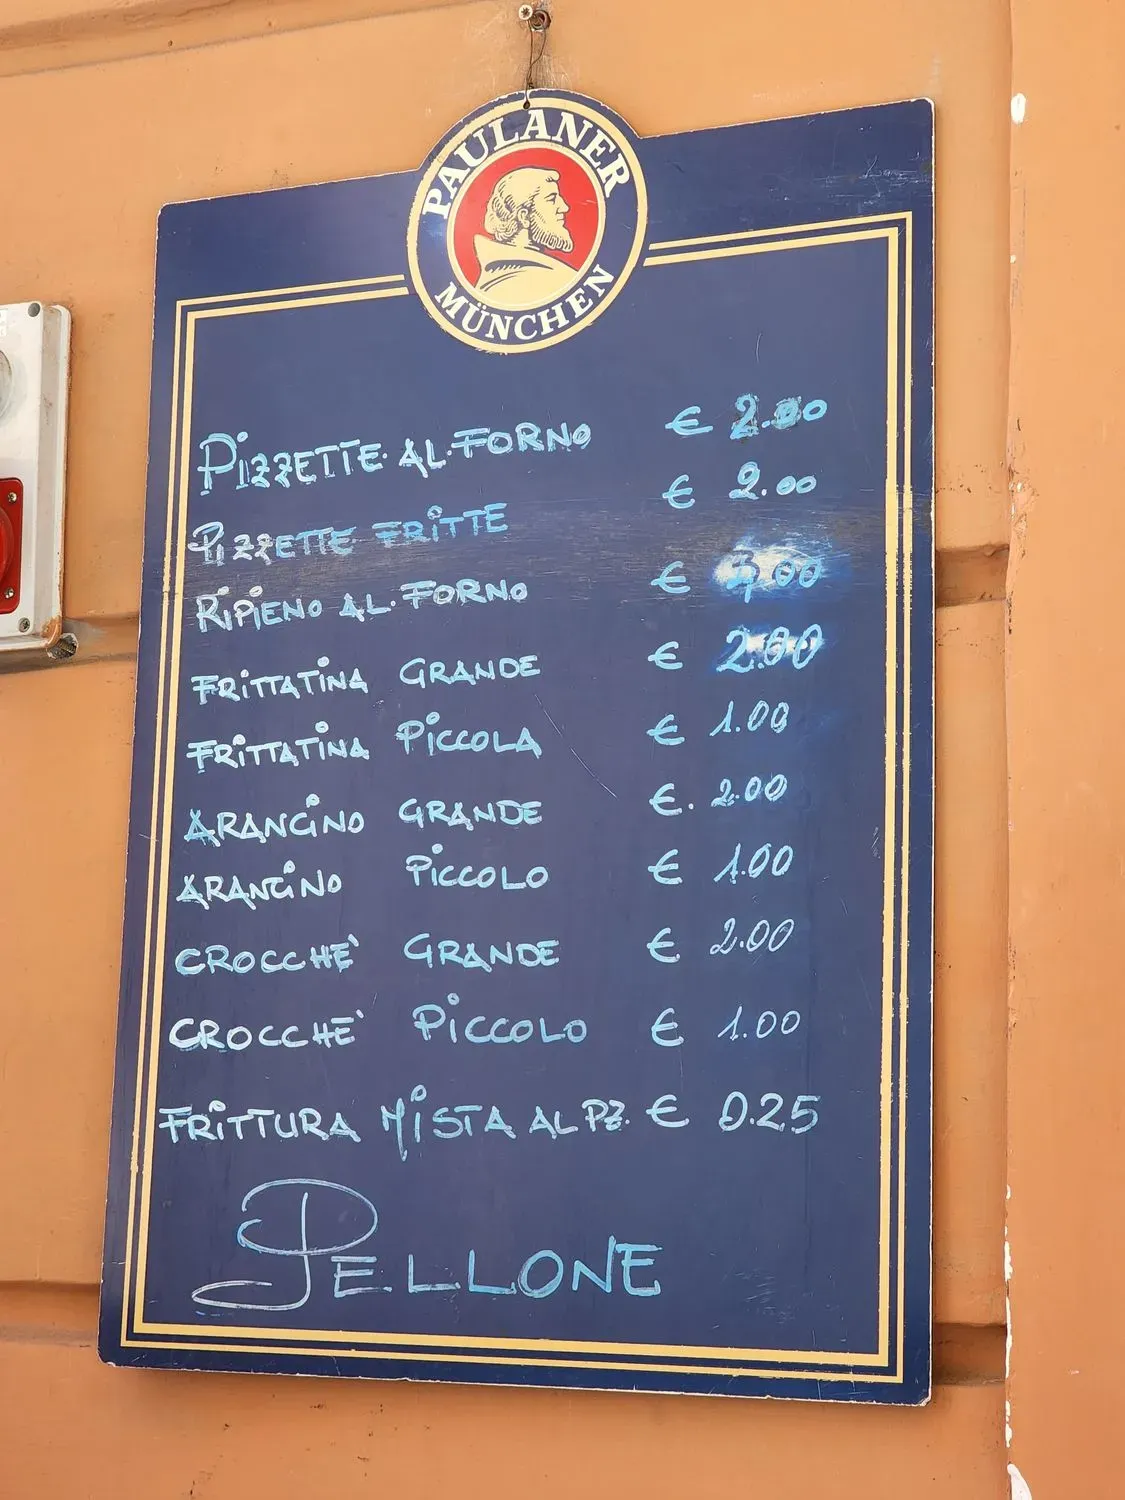 PAULANER
MÜNCHEN
PIZZETTE AL.FORNO € 2.00
PIZZETTE FRITTE € 2.00
RIPIENO AL.FORNO €
FRITTATINA GRANDE € 2.00
FRITTATINA PICCOLA € 1.00
ARANCINO GRANDE €. 2.00
ARANCINO PICCOLO € 1.00
CROCCHE' GRANDE € 2.00
CROCCHE' PICCOLO € 1.00
FRITTURA MISTA AL PZ. € 0.25
PELLONE